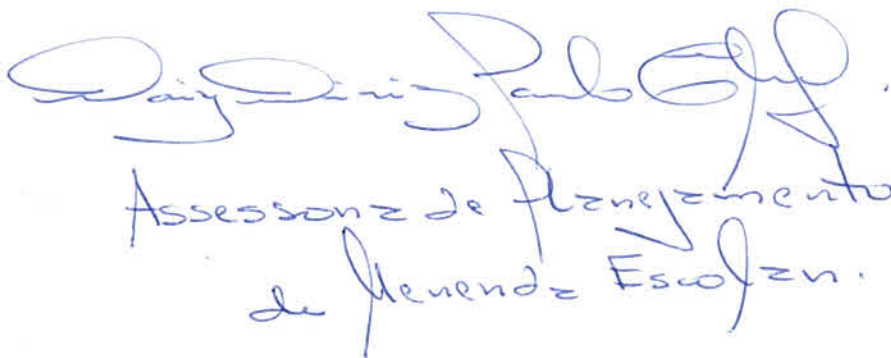 Paulo
Assessora de Planejamento
de Merenda Escolar.